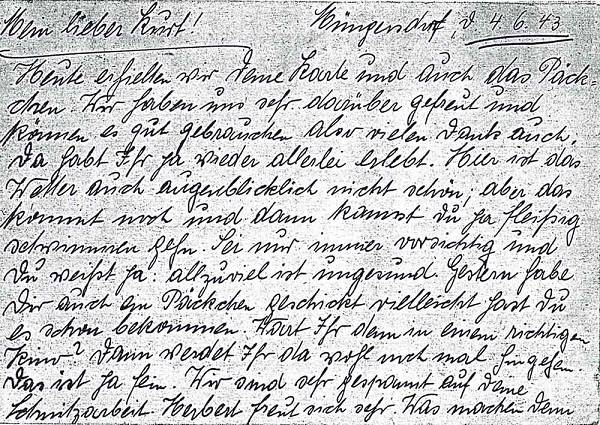 Mein lieber Kurt! Müngersdorf, d 4.6.43
Heute erhielten wir Deine Karte und auch das Päck-
chen. Wir haben uns sehr darüber gefreut und
können es gut gebrauchen also vielen Dank auch.
Da habt Ihr ja wieder allerlei erlebt. Hier ist das
Wetter auch augenblicklich nicht schön, aber das
kommt noch und dann kannst Du ja fleißig
schwimmen gehn. Sei nur immer vorsichtig und
Du weißt ja: allzuviel ist ungesund. Gestern habe
Dir auch ein Päckchen geschickt vielleicht hast Du
es schon bekommen. Wart Ihr denn in einem richtigen
Kino? Dann werdet Ihr da wohl noch mal hingehen.
Das ist ja fein. Wir sind sehr gespannt auf Deine
Schnitzarbeit. Herbert freut sich sehr. Was machen denn